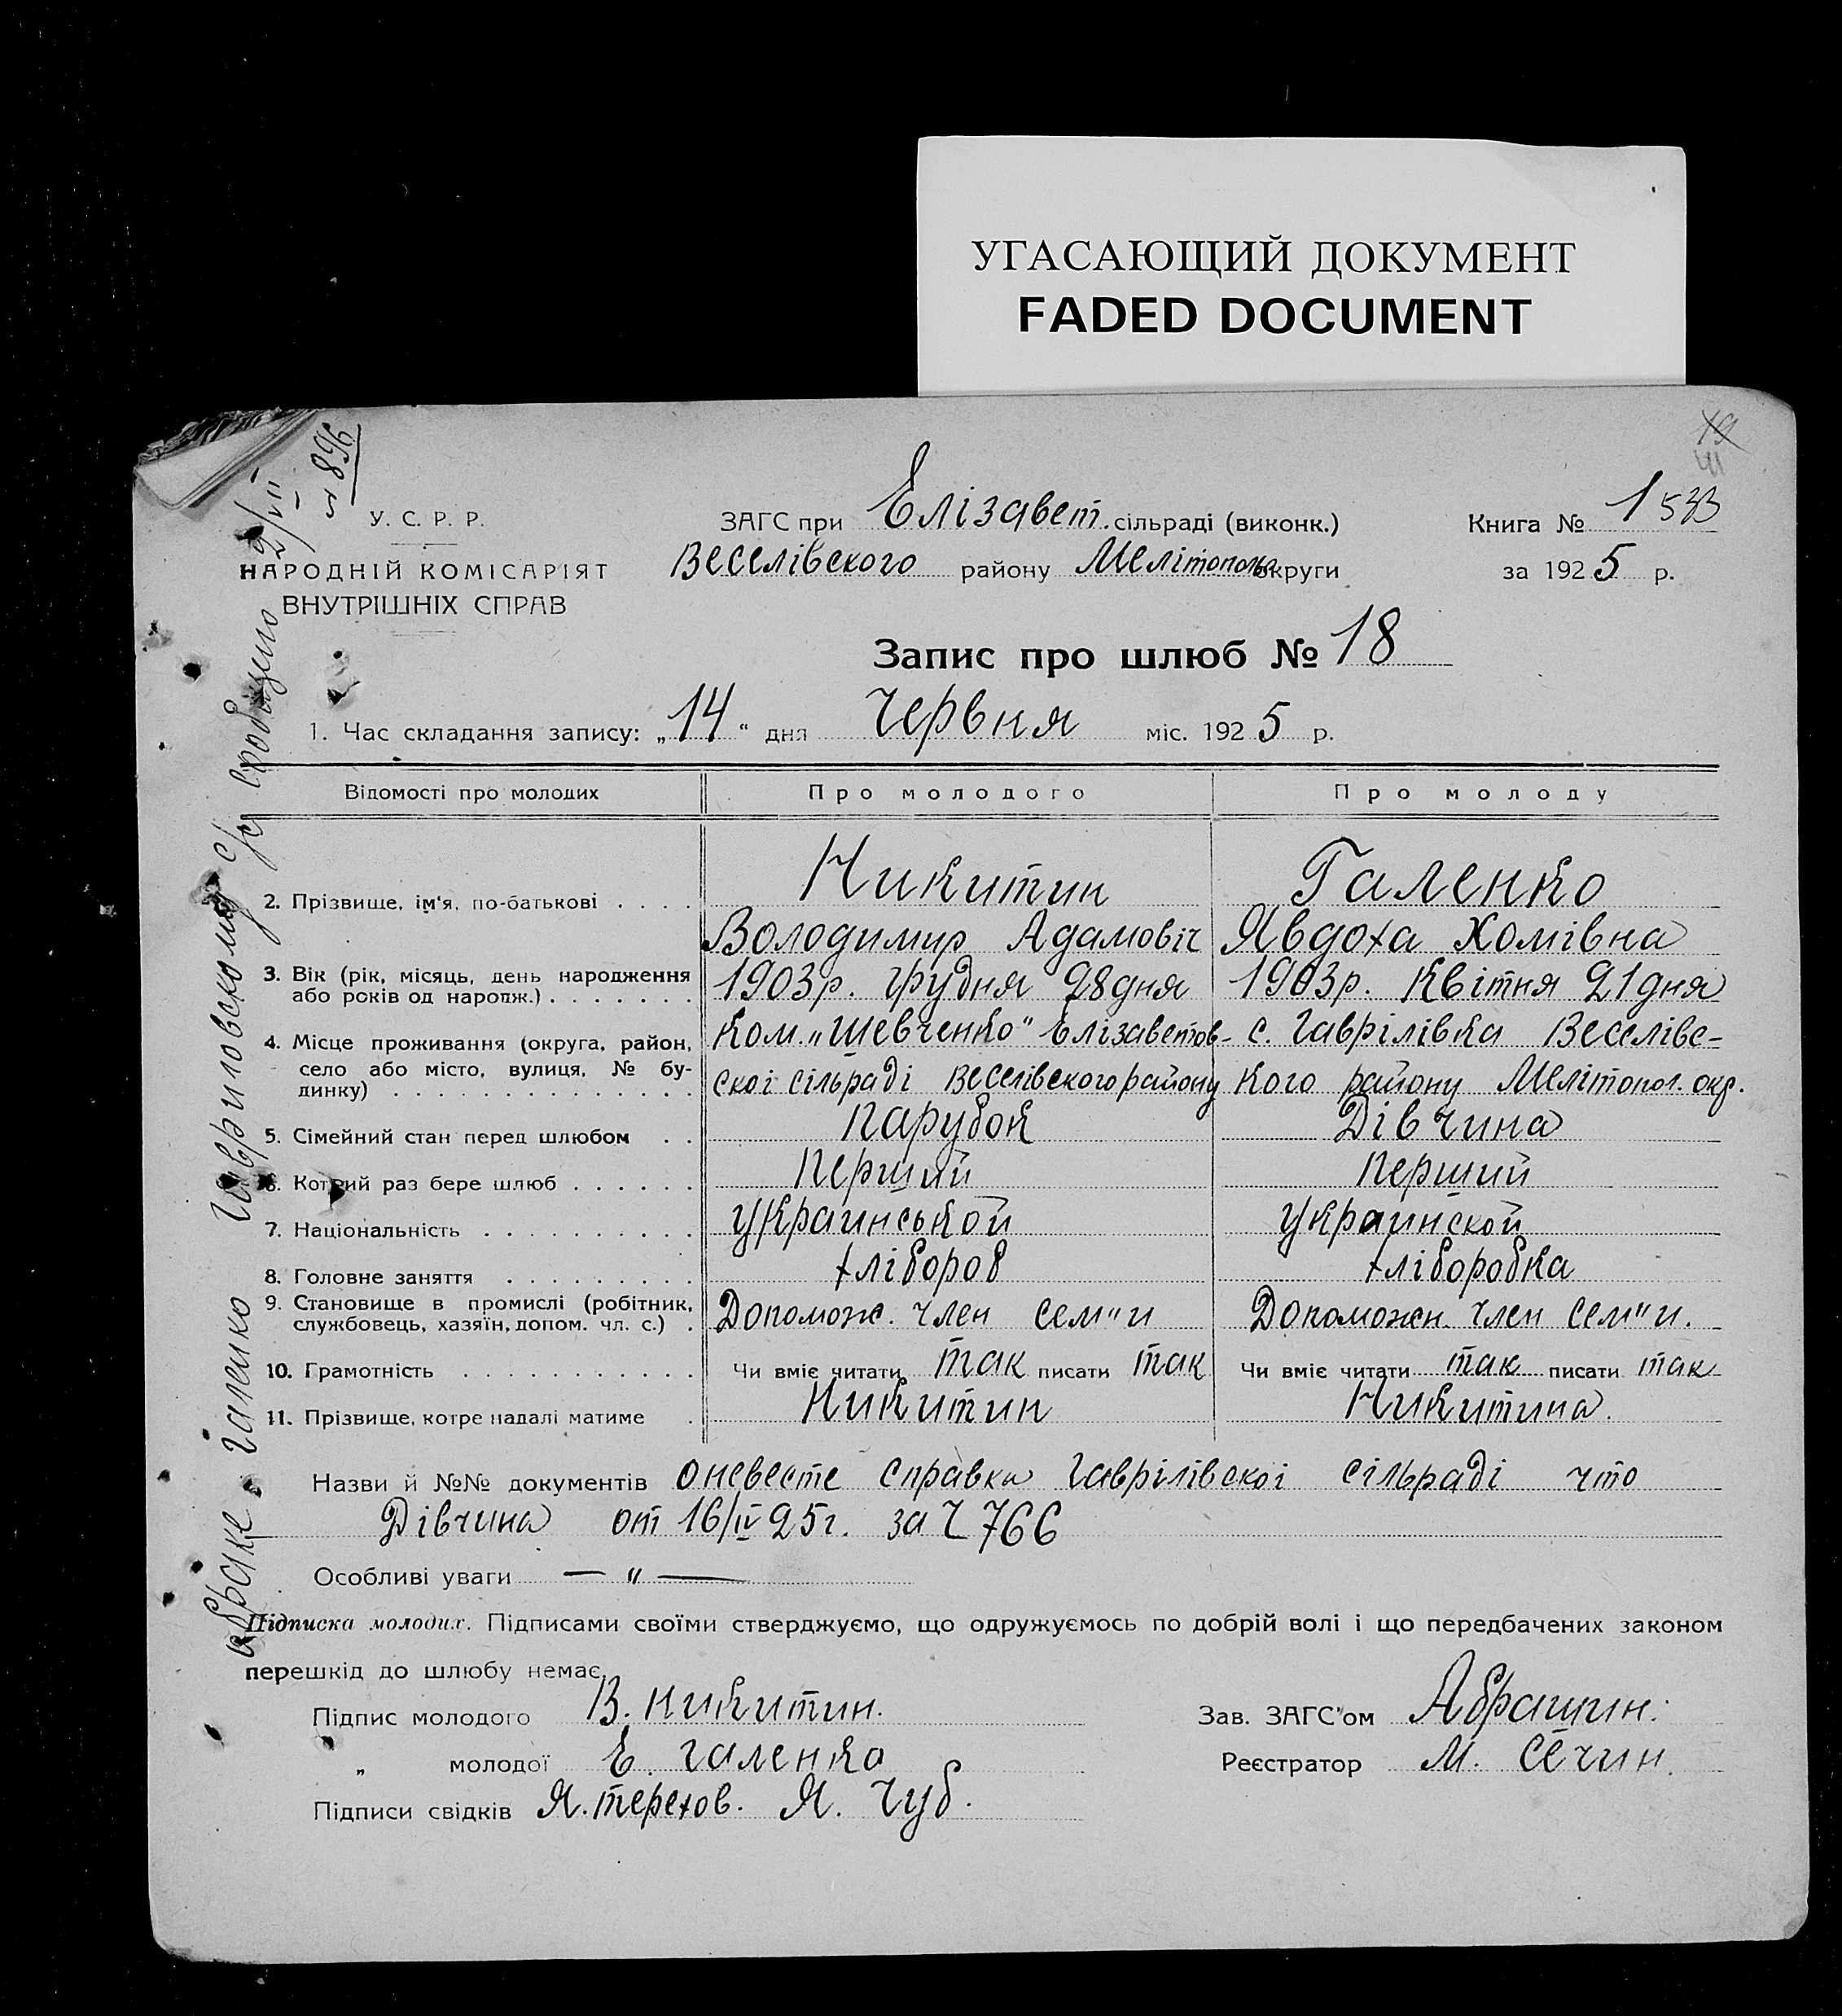 УГАСАЮЩИЙ ДОКУМЕНТ
FADED DOCUMENT
19
№ 896
У. С. Р. Р.
НАРОДНІЙ КОМІСАРІЯТ
ВНУТРІШНІХ СПРАВ
ЗАГС при Елізавет. сільраді (виконк.)
Веселівского району Мелітополь округи
Книга № 1 533
за 1925 р.
Запис про шлюб № 18
1. Час складання запису: „14“ дня Червня міс. 1925 р.
Відомості про молодих Про молодого Про молоду
2. Прізвище, ім'я, по-батькові . . . . Никитин Галенко
Володимир Адамовіч Явдоха Хомівна
3. Вік (рік, місяць, день народження або років од народж.) . . . . . . . 1903р. грудня 28дня 1903р. Квітня 21дня
4. Місце проживання (округа, район, село або місто, вулиця, № будинку) . . . . . . . . . . . . . .
Ком. „Шевченко" Елізаветов-
скоі сільраді Веселівского району
с. Гаврілівка Веселівс-
кого району Мелітопол. окр.
5. Сімейний стан перед шлюбом . . Парубок Дівчина
6. Котрий раз бере шлюб . . . . . . Перший Перший
7. Національність . . . . . . . . . . Украинськой Украинской
8. Головне заняття . . . . . . . . . хлібороб хліборобка
9. Становище в промислі (робітник, службовець, хазяїн, допом. чл. с.) . Допомож. член сем"и Допоможн. член сем"и.
10. Грамотність . . . . . . . . . . . Чи вміє читати так писати так Чи вміє читати так писати так
11. Прізвище, котре надалі матиме . Никитин Никитина.
Назви й №№ документів оневесте справка Гаврілівскоі сільраді что
Дівчина от 16/IV 25г. за Ч 766
Особливі уваги — " —
Підписка молодих. Підписами своїми стверджуємо, що одружуємось по добрій волі і що передбачених законом
перешкід до шлюбу немає.
Підпис молодого В. Никитин.
„ молодої Е. Галенко
Підписи свідків Я. Терехов. Я. Чуб.
Зав. ЗАГС'ом Абрашин.
Реєстратор М. Сечин.
обраке Галенко Гавриловскому с/с 2/VII